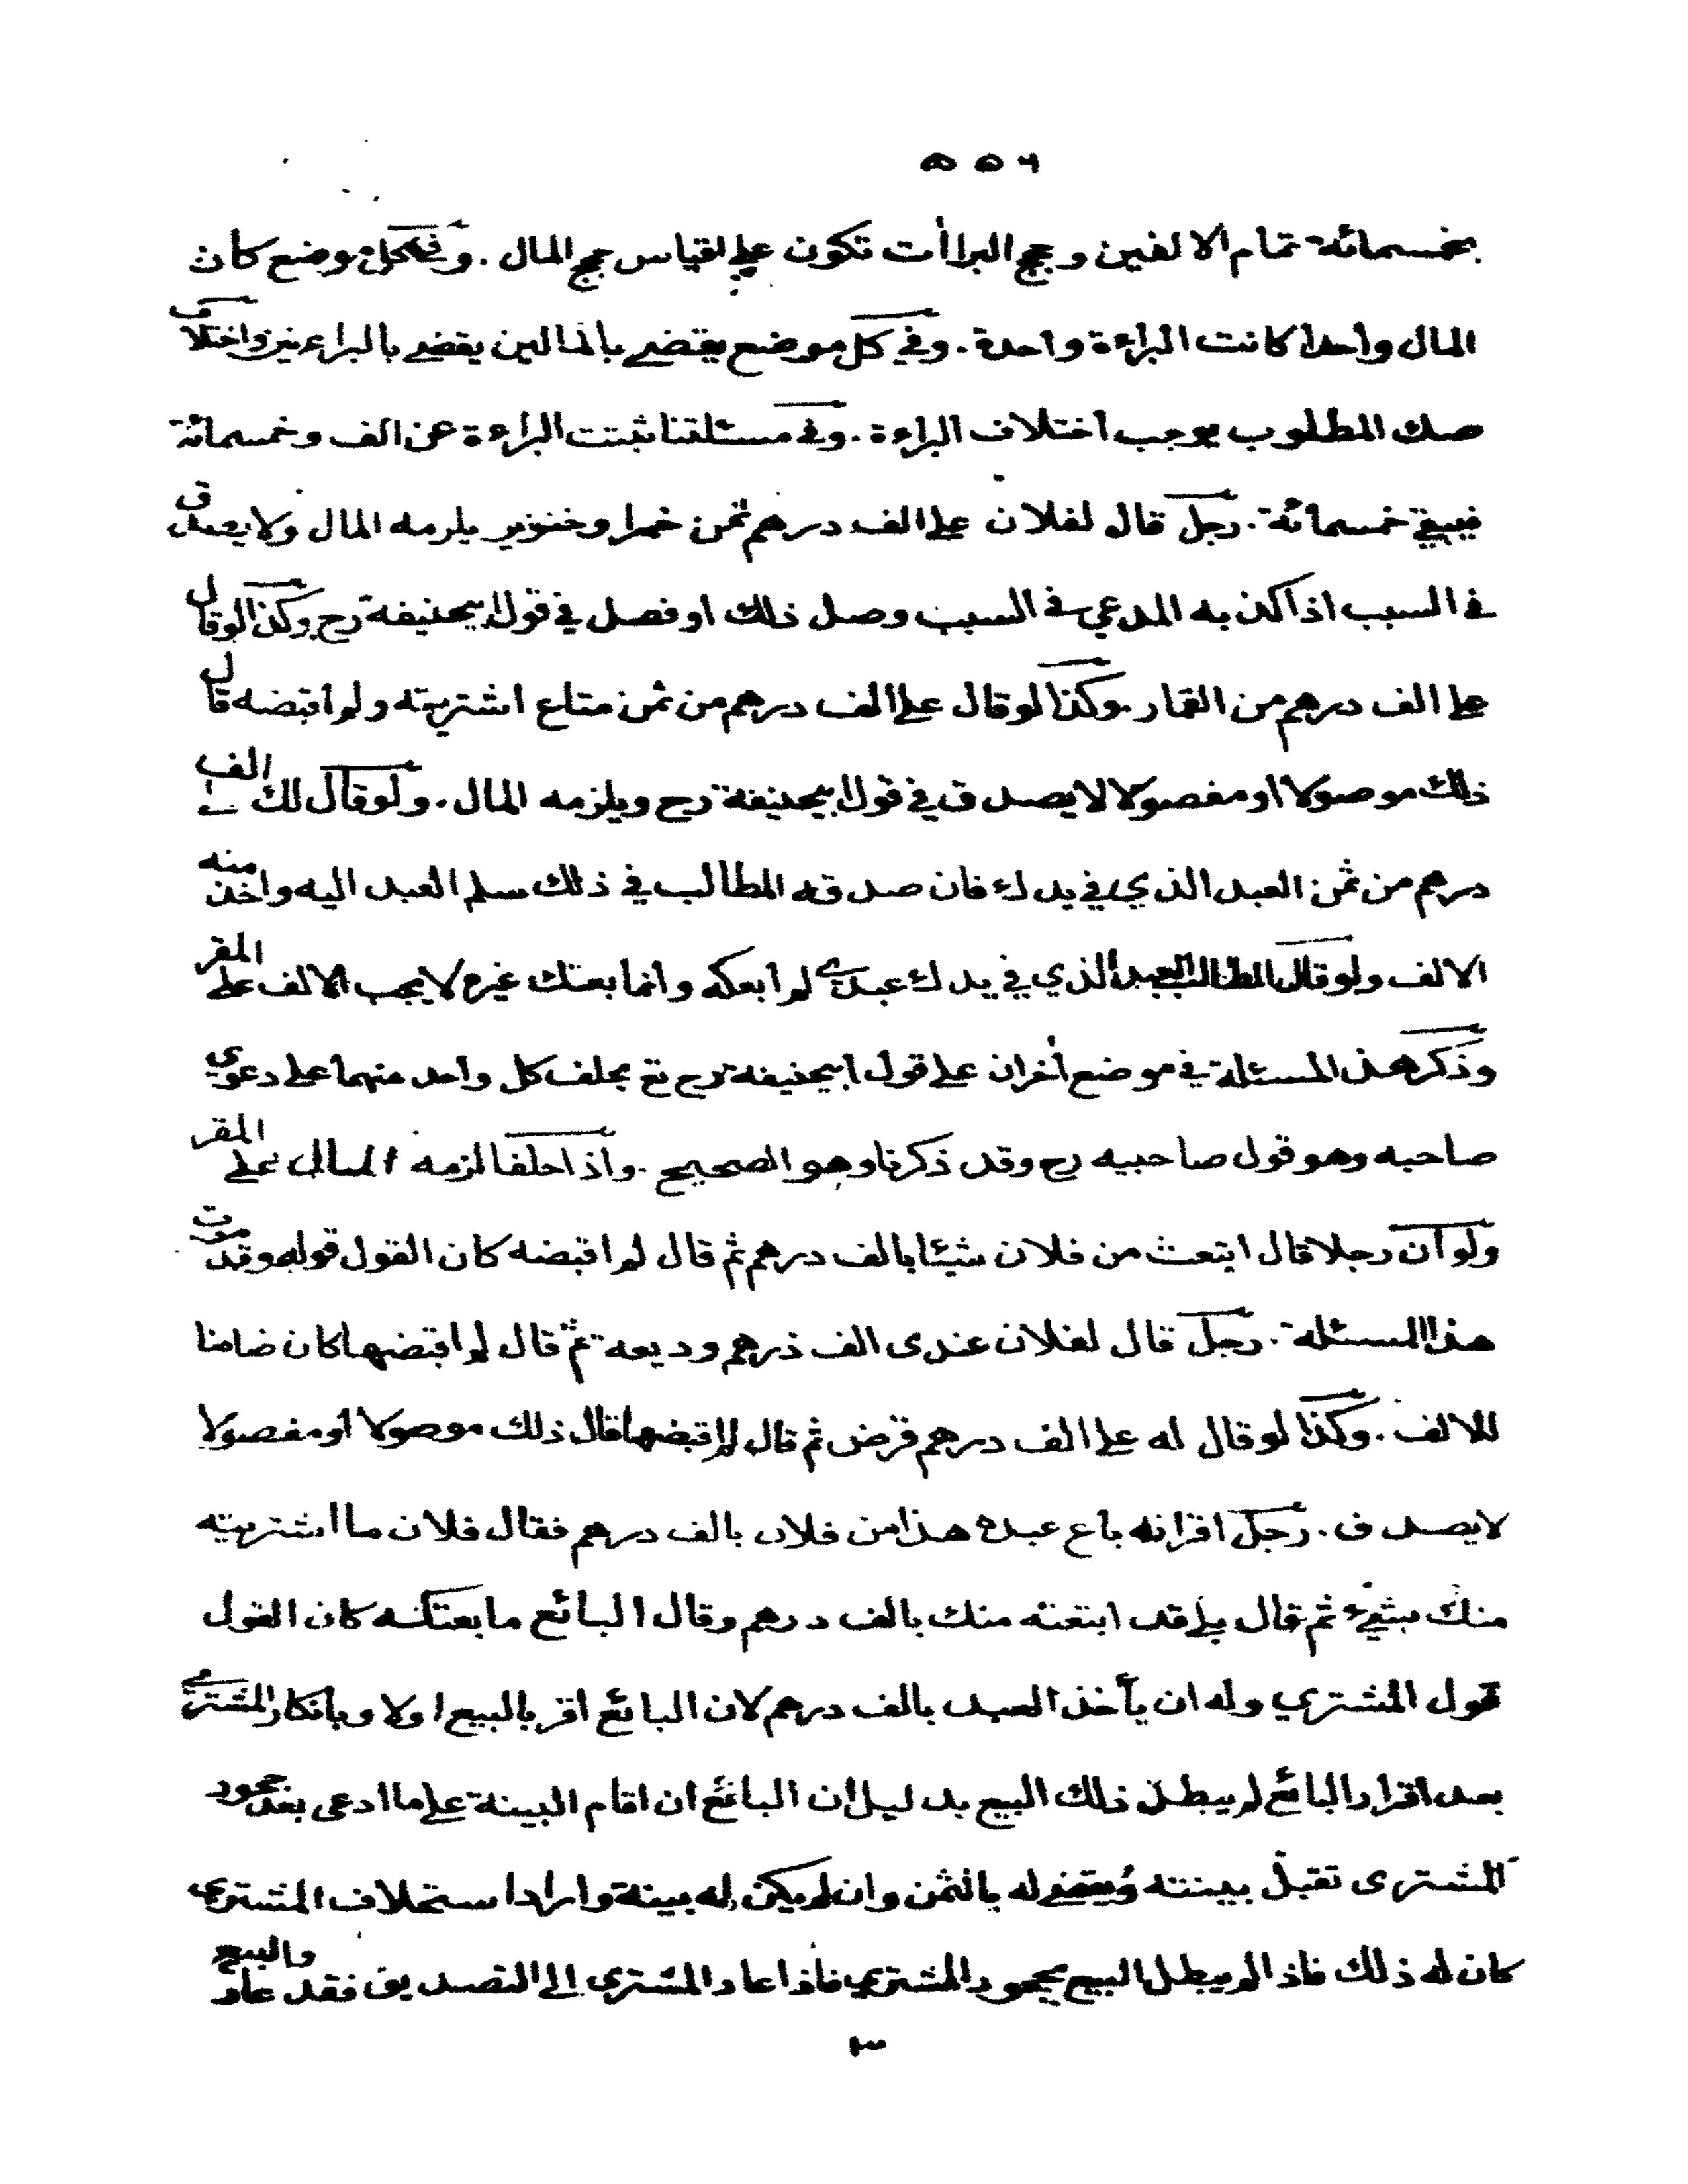 ٥٥٦
بخمسمائة تمام الالفين وحجج البراأت تكون على القياس حجج المال . وفى كل موضع كان
المال واحدا كانت البراءة واحدة . وفي كل موضع يقضى بالمالين يقضى بالبراءتين واختلاف
صك المطلوب يوجب اختلاف البراءة . وفى مسئلتنا ثبتت البراءة عن الف وخمسمائة
فيبقى خمسمائة . رجل قال لفلان على الف درهم ثمن خمر او خنزير يلزمه المال ولا يصدق
فى السبب اذا كذبه المدعي فى السبب وصل ذلك او فصل في قول ابيحنيفة رح وكذا لو قال
على الف درهم من القمار . وكذا لو قال على الف درهم من ثمن متاع اشتريته ولم اقبضه قال
ذلك موصولا او مفصولا لا يصدق في قول ابيحنيفة رح ويلزمه المال . ولو قال لك الف
درهم من ثمن العبد الذي في يدك فان صدقه المطالب في ذلك سلم العبد اليه واخذ منه
الالف ولو قال المطالب العبد الذي في يدك عبدى لم ابعكه وانما بعتك غيره لا يجب الالف على المقر
وذكر هذه المسئلة في موضع أخر ان على قول ابيحنيفة رح تع يحلف كل واحد منهما على دعوي
صاحبه وهو قول صاحبيه رح وقد ذكرنا وهو الصحيح . واذا حلفا لزمه المال على المقر
ولو ان رجلا قال ابتعت من فلان شيئا بالف درهم ثم قال لم اقبضه كان القول قوله وقد مرت
هذا المسئلة . رجل قال لفلان عندى الف درهم وديعة ثم قال لم اقبضها كان ضامنا
للالف . وكذا لو قال له على الف درهم قرض ثم قال لم اقبضها قال ذلك موصولا او مفصولا
لا يصدق . رجل اقر انه باع عبده هذا من فلان بالف درهم فقال فلان ما اشتريته
منك بشيء ثم قال بلى قد ابتعته منك بالف درهم وقال البائع ما بعتكه كان القول
قول المشتري وله ان يأخذ العبد بالف درهم لان البائع اقر بالبيع اولا وبانكار المشتري
بعد اقرار البائع لم يبطل ذلك البيع بدليل ان البائع ان اقام البينة على ما ادعى بعد جحود
المشترى تقبل بينته ويقضى له بالثمن وان لم يكن له بينة واراد استحلاف المشتري
كان له ذلك فاذا لم يبطل البيع بجحود المشتري فاذا عاد المشتري الى التصديق فقد عاد والبيع